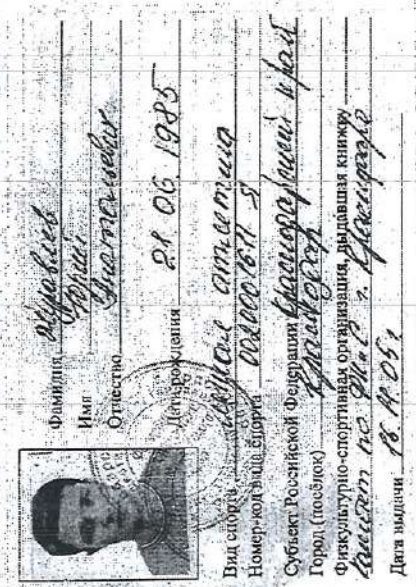 Фамилия Журавлев
Имя Юрий
Отчество Анатольевич
Дата рождения 21 06 1985
Вид спорта легкая атлетика
Номер-код вида спорта 0020001611 Я
Субъект Российской Федерации Краснодарский край
Город (посёлок) Краснодар
Физкультурно-спортивная организация, выдавшая книжку
Комитет по ФК и С г. Краснодара
Дата выдачи 16.11.05г